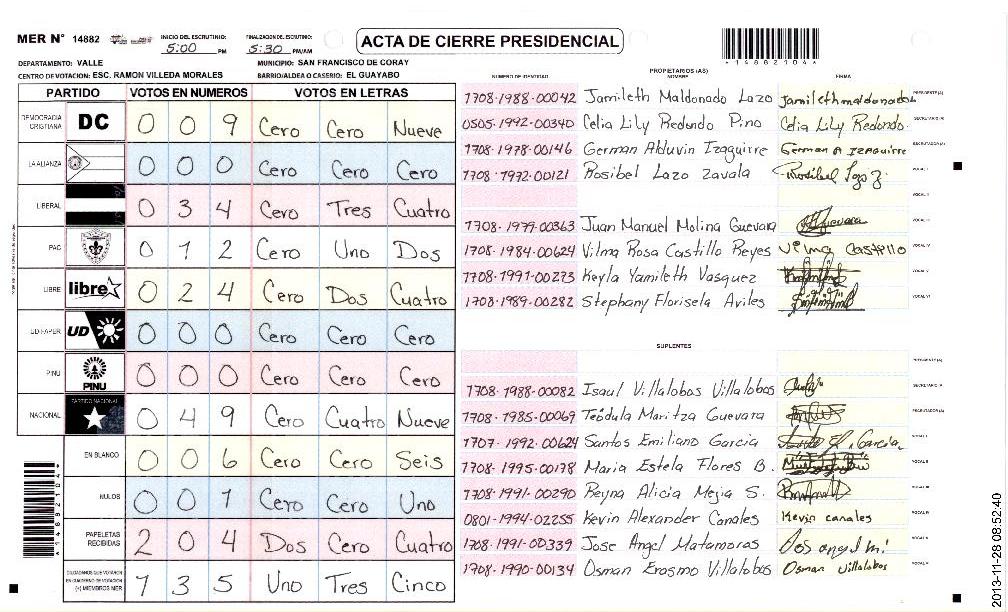 MER N° 14882 INICIO DEL ESCRUTINIO: 5:00 PM FINALIZACION DE ESCRUTINIO: 5:30 PM/AM ACTA DE CIERRE PRESIDENCIAL
*14882104*
DEPARTAMENTO: VALLE MUNICIPIO: SAN FRANCISCO DE CORAY
CENTRO DE VOTACION: ESC. RAMON VILLEDA MORALES BARRIO/ALDEA O CASERIO: EL GUAYABO
PARTIDO VOTOS EN NUMEROS VOTOS EN LETRAS
DEMOCRACIA CRISTIANA DC 0 0 9 Cero Cero Nueve
LA ALIANZA 0 0 0 Cero Cero Cero
LIBERAL 0 3 4 Cero Tres Cuatro
PAC 0 1 2 Cero Uno Dos
LIBRE libre 0 2 4 Cero Dos Cuatro
UD FAPER UD 0 0 0 Cero Cero Cero
PINU PINU 0 0 0 Cero Cero Cero
NACIONAL PARTIDO NACIONAL 0 4 9 Cero Cuatro Nueve
EN BLANCO 0 0 6 Cero Cero Seis
NULOS 0 0 1 Cero Cero Uno
PAPELETAS RECIBIDAS 2 0 4 Dos Cero Cuatro
CIUDADANOS QUE VOTARON EN CUADERNO DE VOTACION (+) MIEMBROS MER 1 3 5 Uno Tres Cinco
*14882104*
PROPIETARIOS (AS)
NUMERO DE IDENTIDAD NOMBRE FIRMA
1708-1988-00042 Jamileth Maldonado Lazo Jamileth maldonado PRESIDENTE (A)
0505-1992-00340 Celia Lily Redondo Pino Celia Lily Redondo. SECRETARIO (A)
1708-1978-00146 German Abduvin Izaguirre German A Izaguirre ESCRUTADOR (A)
1708-1972-00121 Rosibel Lazo Zavala Rosibel Lazo Z. VOCAL I
VOCAL II
1708-1979-00363 Juan Manuel Molina Guevara Guevara VOCAL III
1708-1984-00624 Vilma Rosa Castillo Reyes Vilma Castillo VOCAL IV
1708-1991-00273 Keyla Yamileth Vasquez VOCAL V
1708-1989-00282 Stephany Florisela Aviles VOCAL VI
SUPLENTES
PRESIDENTE (A)
1708-1988-00082 Isaul Villalobos Villalobos SECRETARIO (A)
1708-1985-00069 Teódula Maritza Guevara ESCRUTADOR (A)
1707-1992-00624 Santos Emiliano Garcia Santo El. Garcia. VOCAL I
1708-1995-00178 Maria Estela Flores B. VOCAL II
1708-1991-00290 Reyna Alicia Mejia S. VOCAL III
0801-1994-02255 Kevin Alexander Canales Kevin canales VOCAL IV
1708-1991-00339 Jose Angel Matamoros VOCAL V
1708-1990-00134 Osman Erasmo Villalobos Osman Villalobos VOCAL VI
2013-11-28 08:52:40